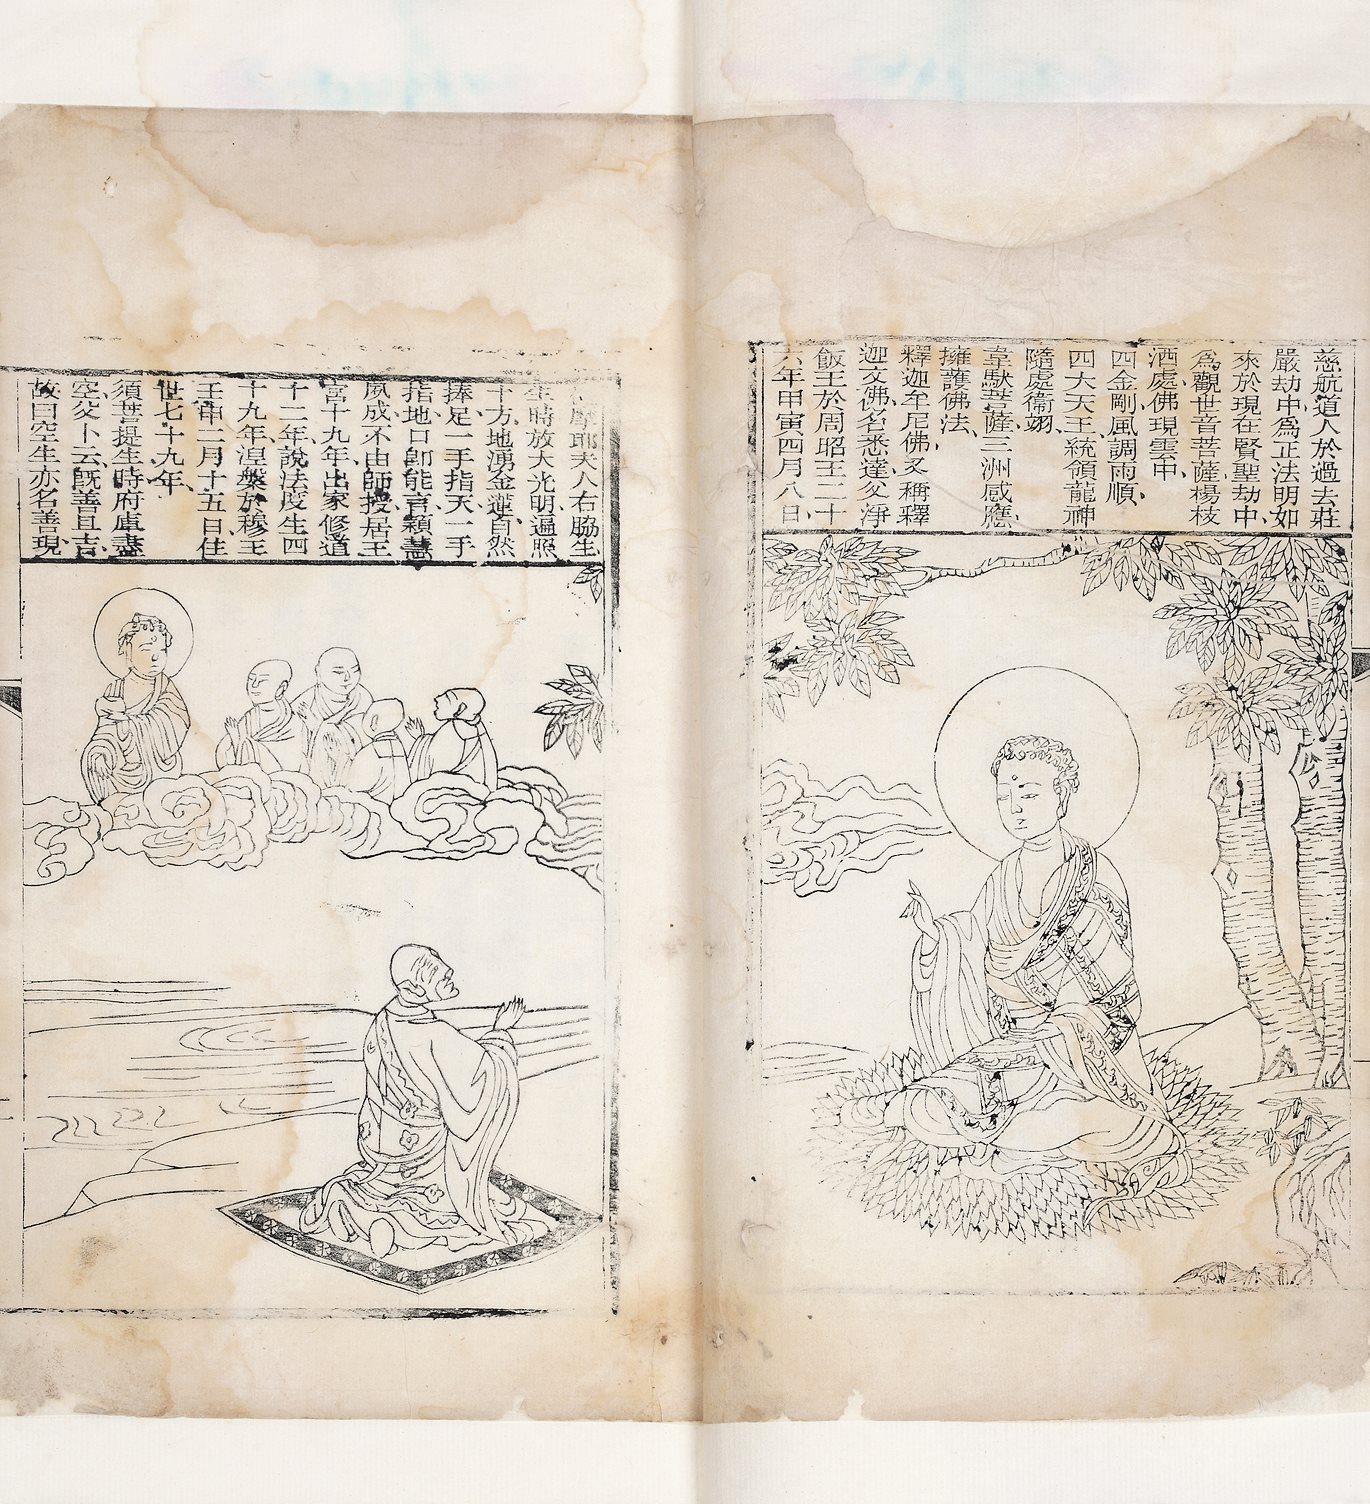 慈航道人於過去莊
嚴劫中為正法明如
來於現在賢聖劫中、
為觀世音菩薩楊枝
洒處佛現雲中、
四金剛風調雨順、
四大天王、統領龍神
隨處衛翊、
韋馱菩薩三洲感應、
擁護佛法、
釋迦牟尼佛又稱釋
迦文佛名悉達父淨
飯王於周昭王二十
六年甲寅四月八日、
摩耶夫人右脇生
生時放大光明遍照、
十方地湧金蓮自然
捧足一手指天一手
指地口即能言穎慧
夙成不由師授居王
宮十九年出家修道
十二年說法度生四
十九年涅槃於穆王
壬申二月十五日住
世七十九年、
須菩提生時府庫盡
空父卜云既善且吉、
故曰空生亦名善現、